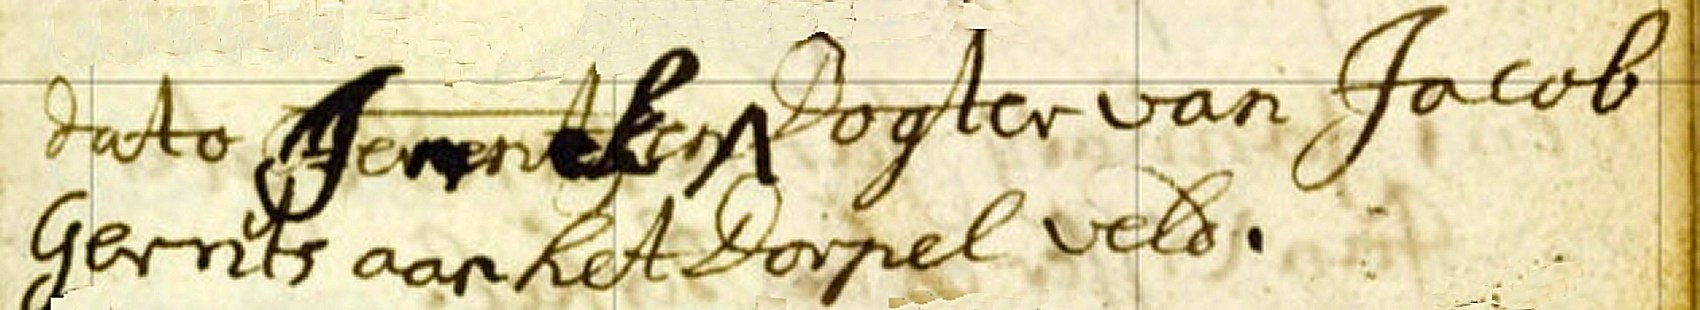 dato Dogter van Jacob
Gerrits aan het Dorpel veld.